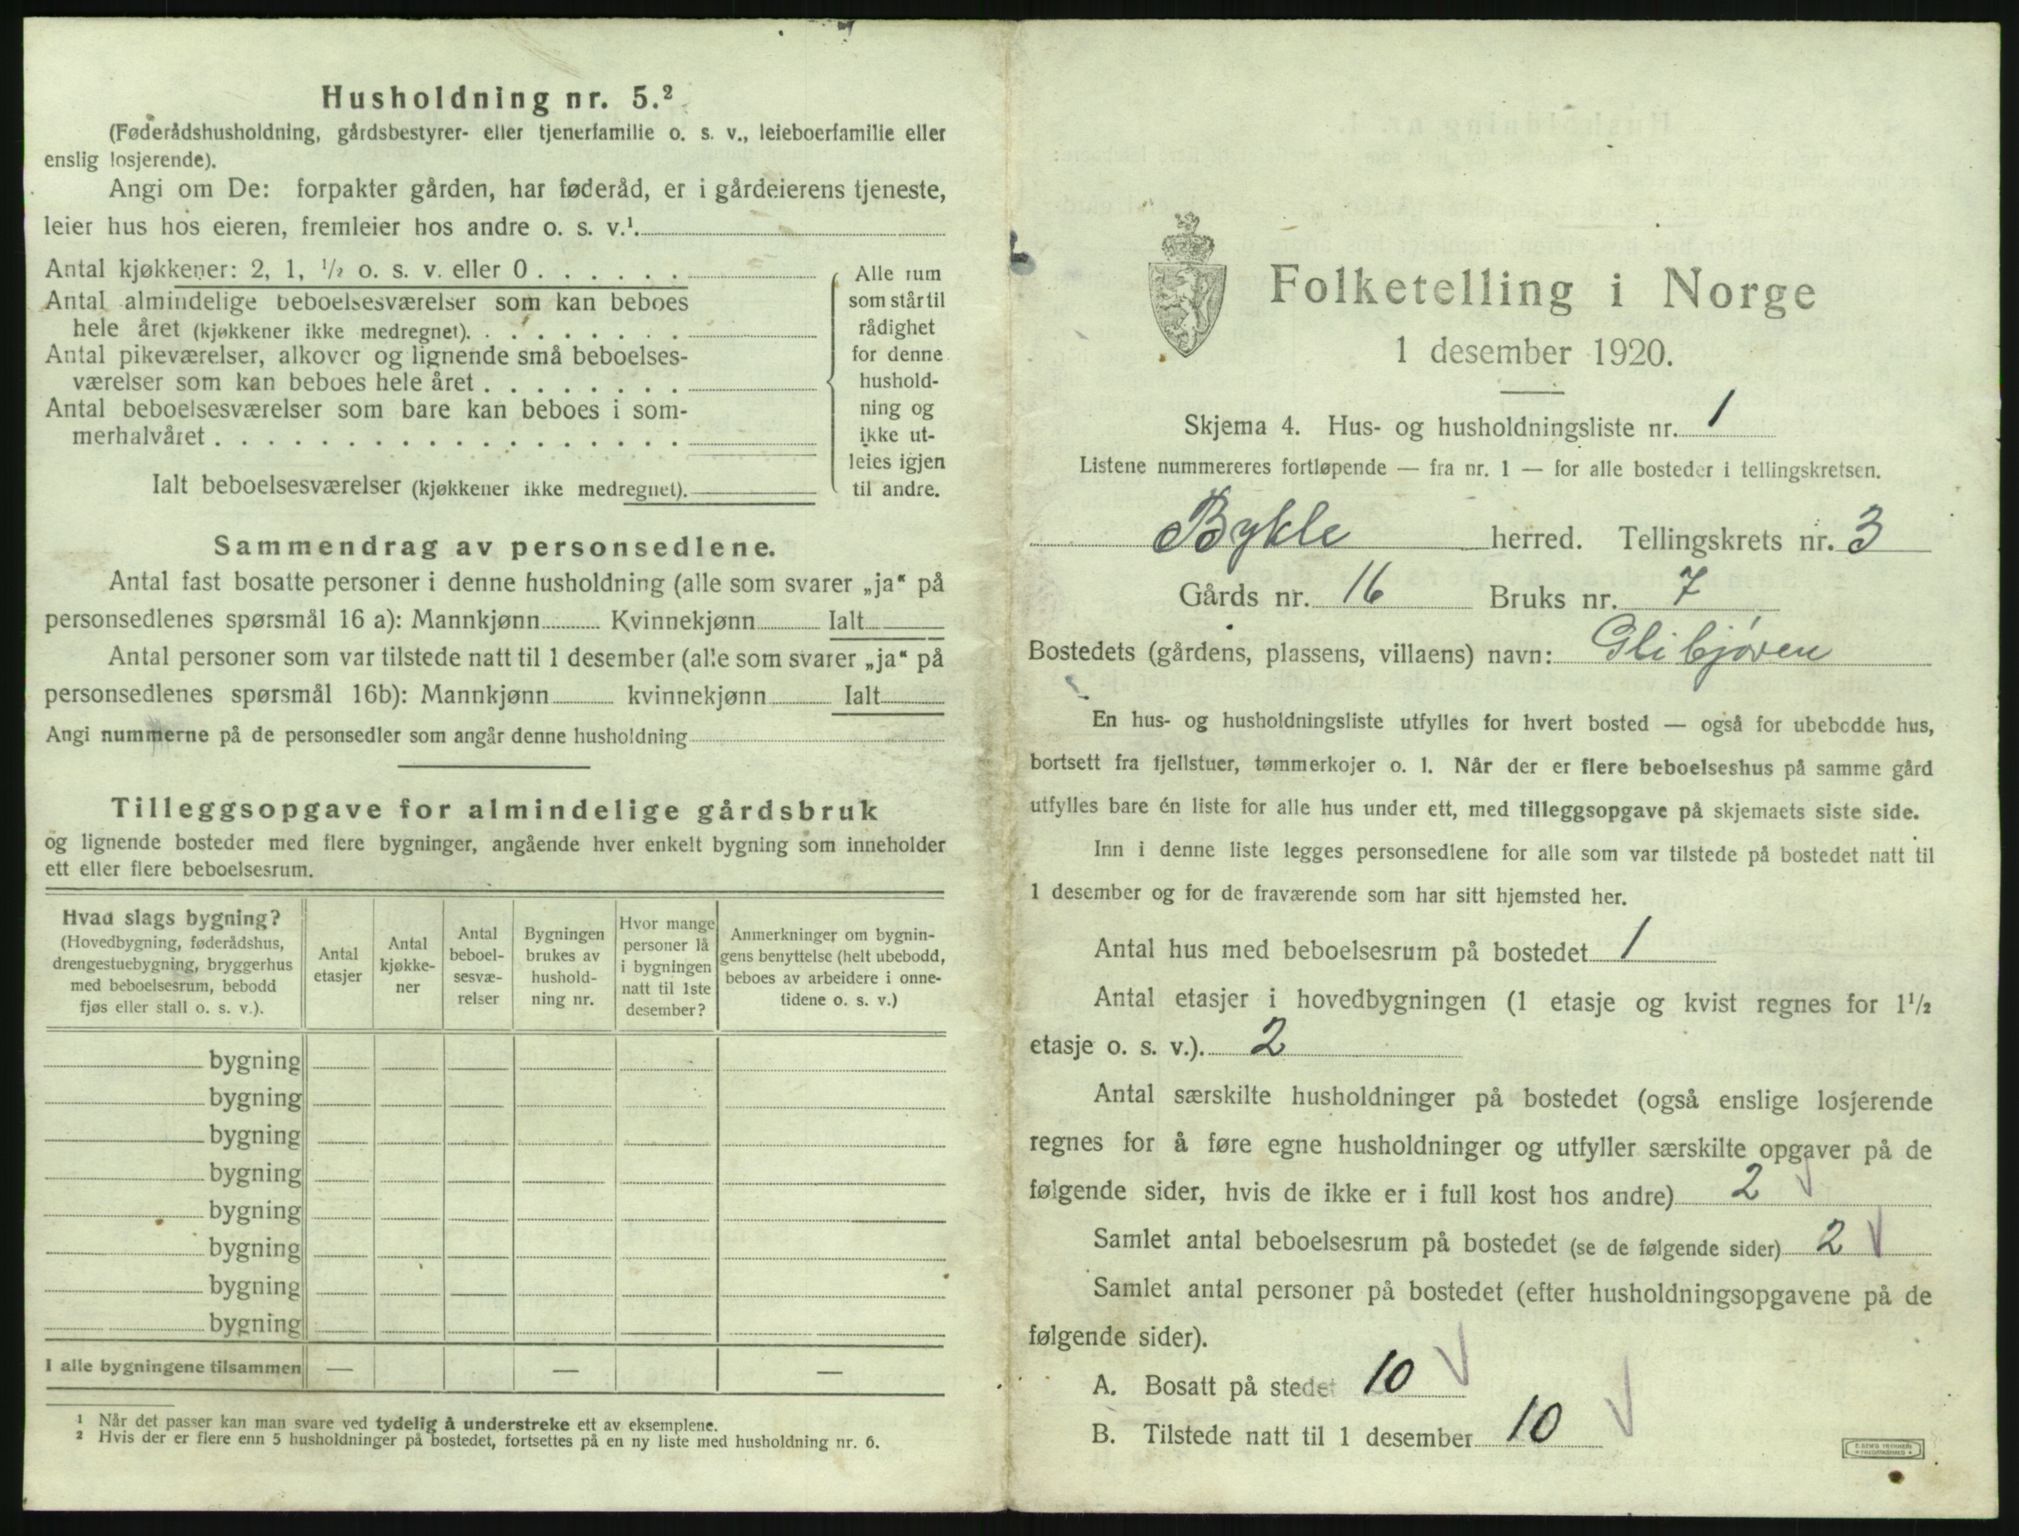 Husholdning nr. 5.²
(Føderådshusholdning, gårdsbestyrer- eller tjenerfamilie o. s. v., leieboerfamilie eller
enslig losjerende).
Angi om De: forpakter gården, har føderåd, er i gårdeierens tjeneste,
leier hus hos eieren, fremleier hos andre o. s. v.¹.
Antal kjøkkener: 2, 1, ½ o. s. v. eller 0 . . . . . .
Antal almindelige beboelsesværelser som kan beboes
hele året (kjøkkener ikke medregnet). . . . . . . .
Antal pikeværelser, alkover og lignende små beboelses-
værelser som kan beboes hele året . . . . . . . .
Antal beboelsesværelser som bare kan beboes i som-
merhalvåret . . . . . . . . . . . . . . . . . .
Ialt beboelsesværelser (kjøkkener ikke medregnet).
Alle rum
som står til
rådighet
for denne
hushold-
ning og
ikke ut-
leies igjen
til andre.
Sammendrag av personsedlene.
Antal fast bosatte personer i denne husholdning (alle som svarer „ja“ på
personsedlenes spørsmål 16 a): Mannkjønn Kvinnekjønn Ialt
Antal personer som var tilstede natt til 1 desember (alle som svarer „ja“ på
personsedlenes spørsmål 16b): Mannkjønn kvinnekjønn Ialt
Angi nummerne på de personsedler som angår denne husholdning
Tilleggsopgave for almindelige gårdsbruk
og lignende bosteder med flere bygninger, angående hver enkelt bygning som inneholder
ett eller flere beboelsesrum.
Hvad slags bygning?
(Hovedbygning, føderådshus,
drengestuebygning, bryggerhus
med beboelsesrum, bebodd
fjøs eller stall o. s. v.).
Antal
etasjer
Antal
kjøkke-
ner
Antal
beboel-
sesvæ-
relser
Bygningen
brukes av
hushold-
ning nr.
Hvor mange
personer lå
i bygningen
natt til 1ste
desember?
Anmerkninger om bygnin-
gens benyttelse (helt ubebodd,
beboes av arbeidere i onne-
tidene o. s. v.)
bygning
bygning
bygning
bygning
bygning
bygning
bygning
bygning
I alle bygningene tilsammen — — —
¹ Når det passer kan man svare ved tydelig å understreke ett av eksemplene.
² Hvis der er flere enn 5 husholdninger på bostedet, fortsettes på en ny liste med husholdning nr. 6.
Folketelling i Norge
1 desember 1920.
Skjema 4. Hus- og husholdningsliste nr. 1
Listene nummereres fortløpende — fra nr. 1 — for alle bosteder i tellingskretsen.
Bykle herred. Tellingskrets nr. 3
Gårds nr. 16 Bruks nr. 7
Bostedets (gårdens, plassens, villaens) navn: Glibjøren
En hus- og husholdningsliste utfylles for hvert bosted — også for ubebodde hus,
bortsett fra fjellstuer, tømmerkojer o. l. Når der er flere beboelseshus på samme gård
utfylles bare én liste for alle hus under ett, med tilleggsopgave på skjemaets siste side.
Inn i denne liste legges personsedlene for alle som var tilstede på bostedet natt til
1 desember og for de fraværende som har sitt hjemsted her.
Antal hus med beboelsesrum på bostedet 1
Antal etasjer i hovedbygningen (1 etasje og kvist regnes for 1½
etasje o. s. v.). 2
Antal særskilte husholdninger på bostedet (også enslige losjerende
regnes for å føre egne husholdninger og utfyller særskilte opgaver på de
følgende sider, hvis de ikke er i full kost hos andre) 2
Samlet antal beboelsesrum på bostedet (se de følgende sider) 2
Samlet antal personer på bostedet (efter husholdningsopgavene på de
følgende sider).
A. Bosatt på stedet 10
B. Tilstede natt til 1 desember 10